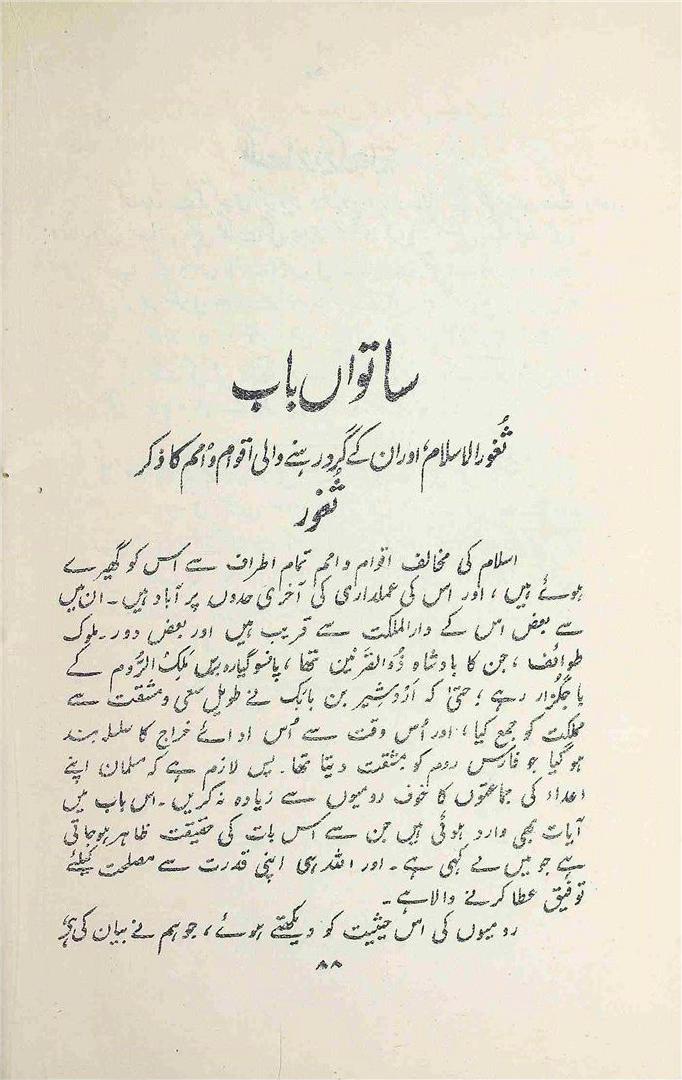 ساتواں باب
ثُغور الاسلام، اور ان کے گرد رہنے والی اقوام و امم کا ذکر
ثُغور
اسلام کی مخالف اقوام و امم تمام اطراف سے اس کو گھیرے
ہوئے ہیں، اور اس کی عملداری کی آخری حدوں پر آباد ہیں۔ ان میں
سے بعض اس کے دارالملکت سے قریب ہیں اور بعض دور۔ ملوک
طوائف، جن کا بادشاہ ذُوالقرنین تھا، پانسو گیارہ برس ملِک الرُّوم کے
باجگزار رہے؛ حتیٰ کہ اَرْدشیر بن بابک نے طویل سعی و مشقت سے
مملکت کو جمع کیا، اور اُس وقت سے اُس ادائے خراج کا سلسلہ بند
ہو گیا جو فارس روم کو بمشقت دیتا تھا۔ پس لازم ہے کہ مسلمان اپنے
اعداء کی جماعتوں کا خوف رومیوں سے زیادہ نہ کریں۔ اس باب میں
آیات بھی وارد ہوئی ہیں جن سے اس بات کی حقیقت ظاہر ہو جاتی
ہے جو میں نے کہی ہے۔ اور اللہ ہی اپنی قدرت سے مصلحت کیلئے
توفیق عطا کرنے والا ہے۔
رومیوں کی اس حیثیت کو دیکھتے ہوئے، جو ہم نے بیان کی ہے،
۸۸